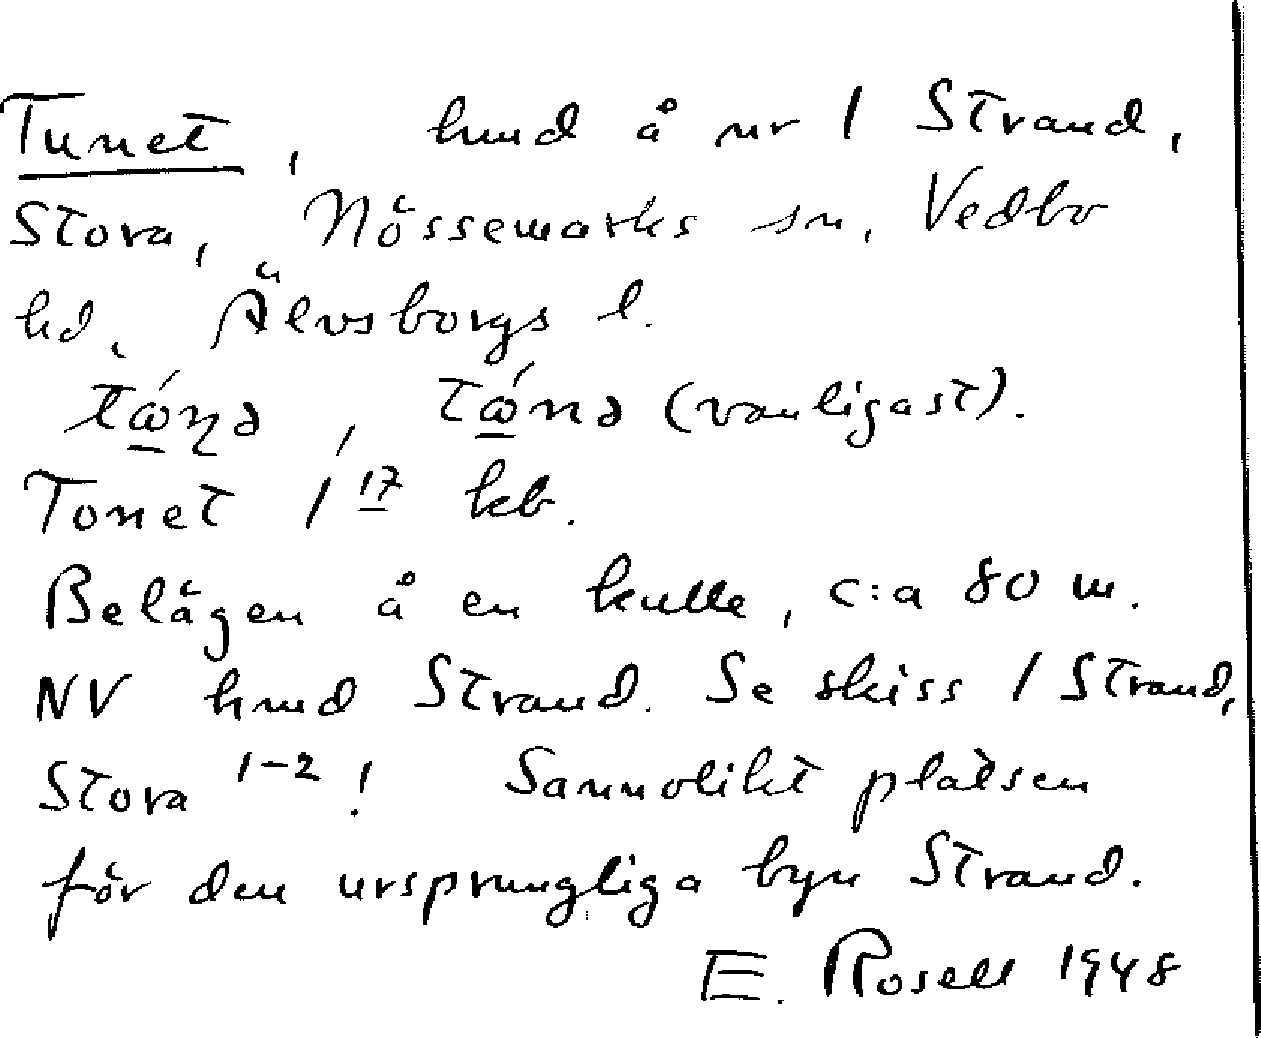 Tunet, hmd å nr 1 Strand,
Stora, Nössemarks sn, Vedbo
hd, Älvsborgs l.
(vanligast).
Tonet 1 17 kb.
Belägen å en kulle, c:a 80 m.
NV hmd Strand. Se skiss 1 Strand,
Stora 1-2! Sannolikt platsen
för den ursprungliga byn Strand.
E. Rosell 1948